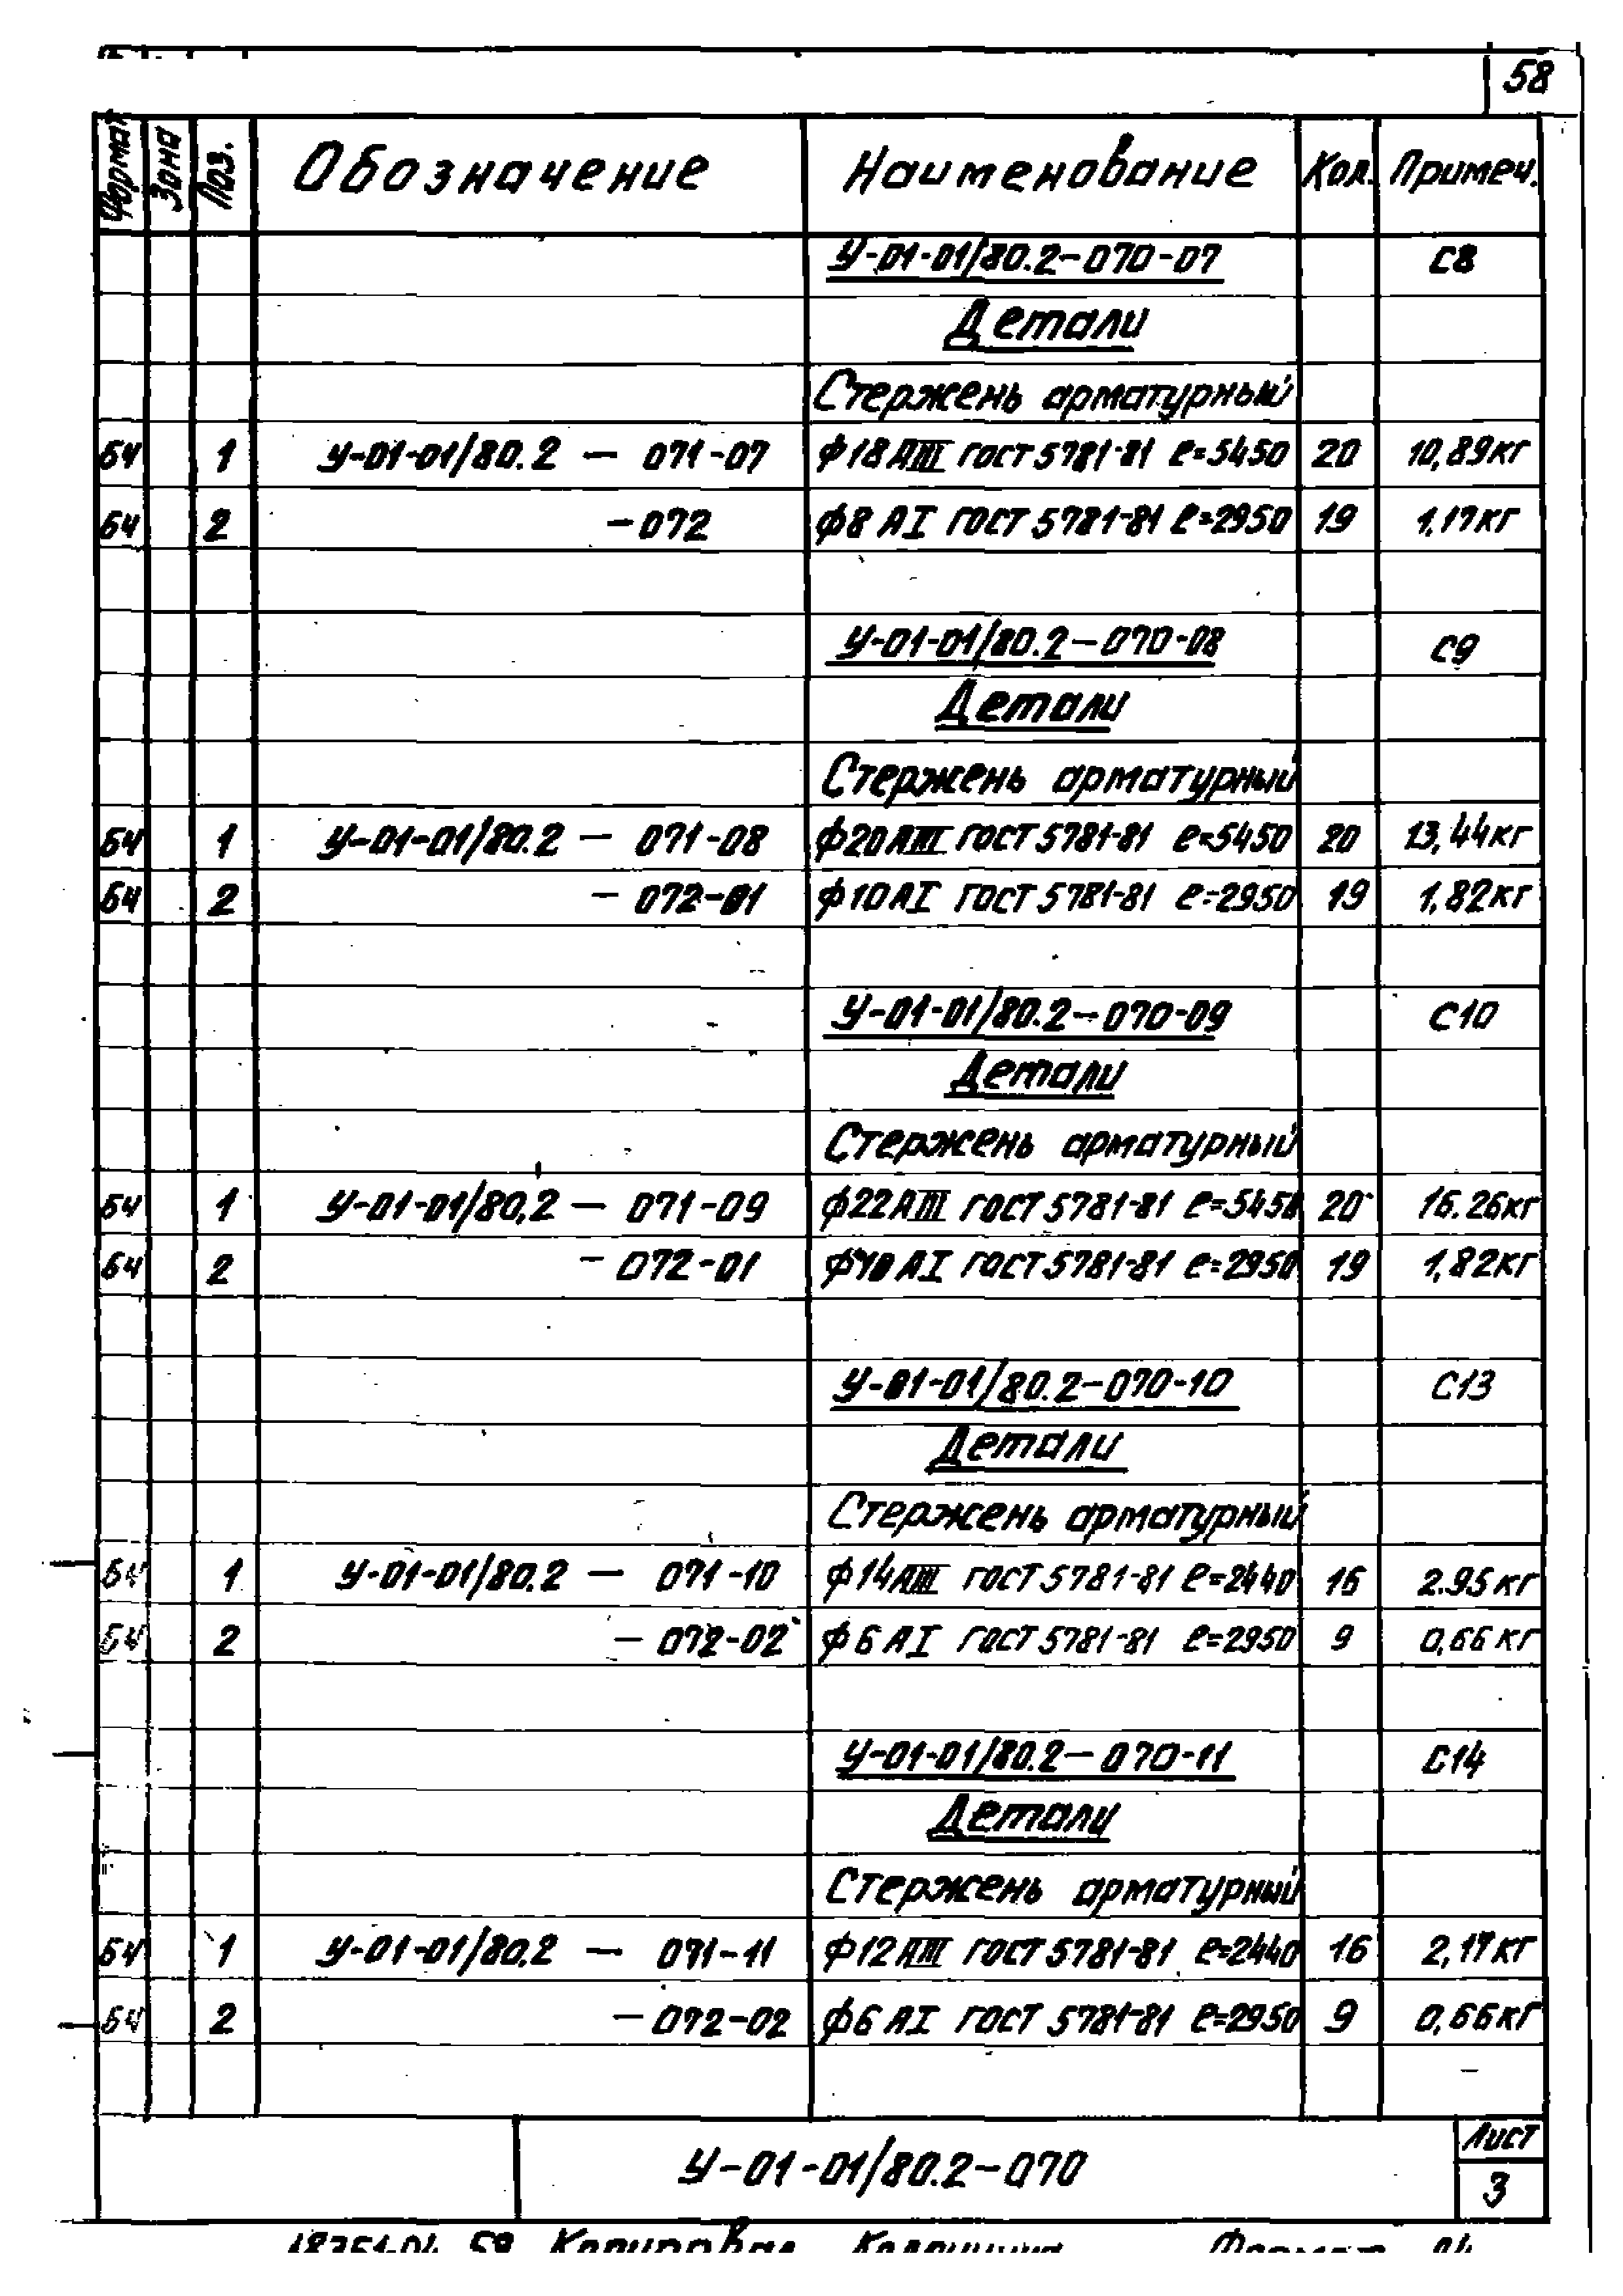 58
Формат Зона Поз. Обозначение Наименование Кол. Примеч.
У-01-01/80.2-070-07 С8
Детали
Стержень арматурный
БЧ 1 У-01-01/80.2 - 071-07 Ф18АIII ГОСТ 5781-81 ℓ=5450 20 10,89кг
БЧ 2 -072 Ф8 АI ГОСТ 5781-81 ℓ=2950 19 1,17кг
У-01-01/80.2-070-08 С9
Детали
Стержень арматурный
БЧ 1 У-01-01/80.2 - 071-08 Ф20АIII ГОСТ 5781-81 ℓ=5450 20 13,44кг
БЧ 2 - 072-01 Ф10АI ГОСТ 5781-81 ℓ=2950 19 1,82кг
У-01-01/80.2-070-09 С10
Детали
Стержень арматурный
БЧ 1 У-01-01/80,2 - 071-09 Ф22АIII ГОСТ 5781-81 ℓ=5450 20 16.26кг
БЧ 2 - 072-01 Ф10 АI ГОСТ 5781-81 ℓ=2950 19 1,82кг
У-01-01/80.2-070-10 С13
Детали
Стержень арматурный
БЧ 1 У-01-01/80.2 - 071-10 Ф14АIII ГОСТ 5781-81 ℓ=2440 16 2.95кг
БЧ 2 - 072-02 Ф6 АI ГОСТ 5781-81 ℓ=2950 9 0,66кг
У-01-01/80.2-070-11 С14
Детали
Стержень арматурный
БЧ 1 У-01-01/80.2 - 071-11 Ф12АIII ГОСТ 5781-81 ℓ=2440 16 2,17кг
БЧ 2 - 072-02 Ф6 АI ГОСТ 5781-81 ℓ=2950 9 0,66кг
У-01-01/80.2-070 Лист
3
59 Копировал Формат